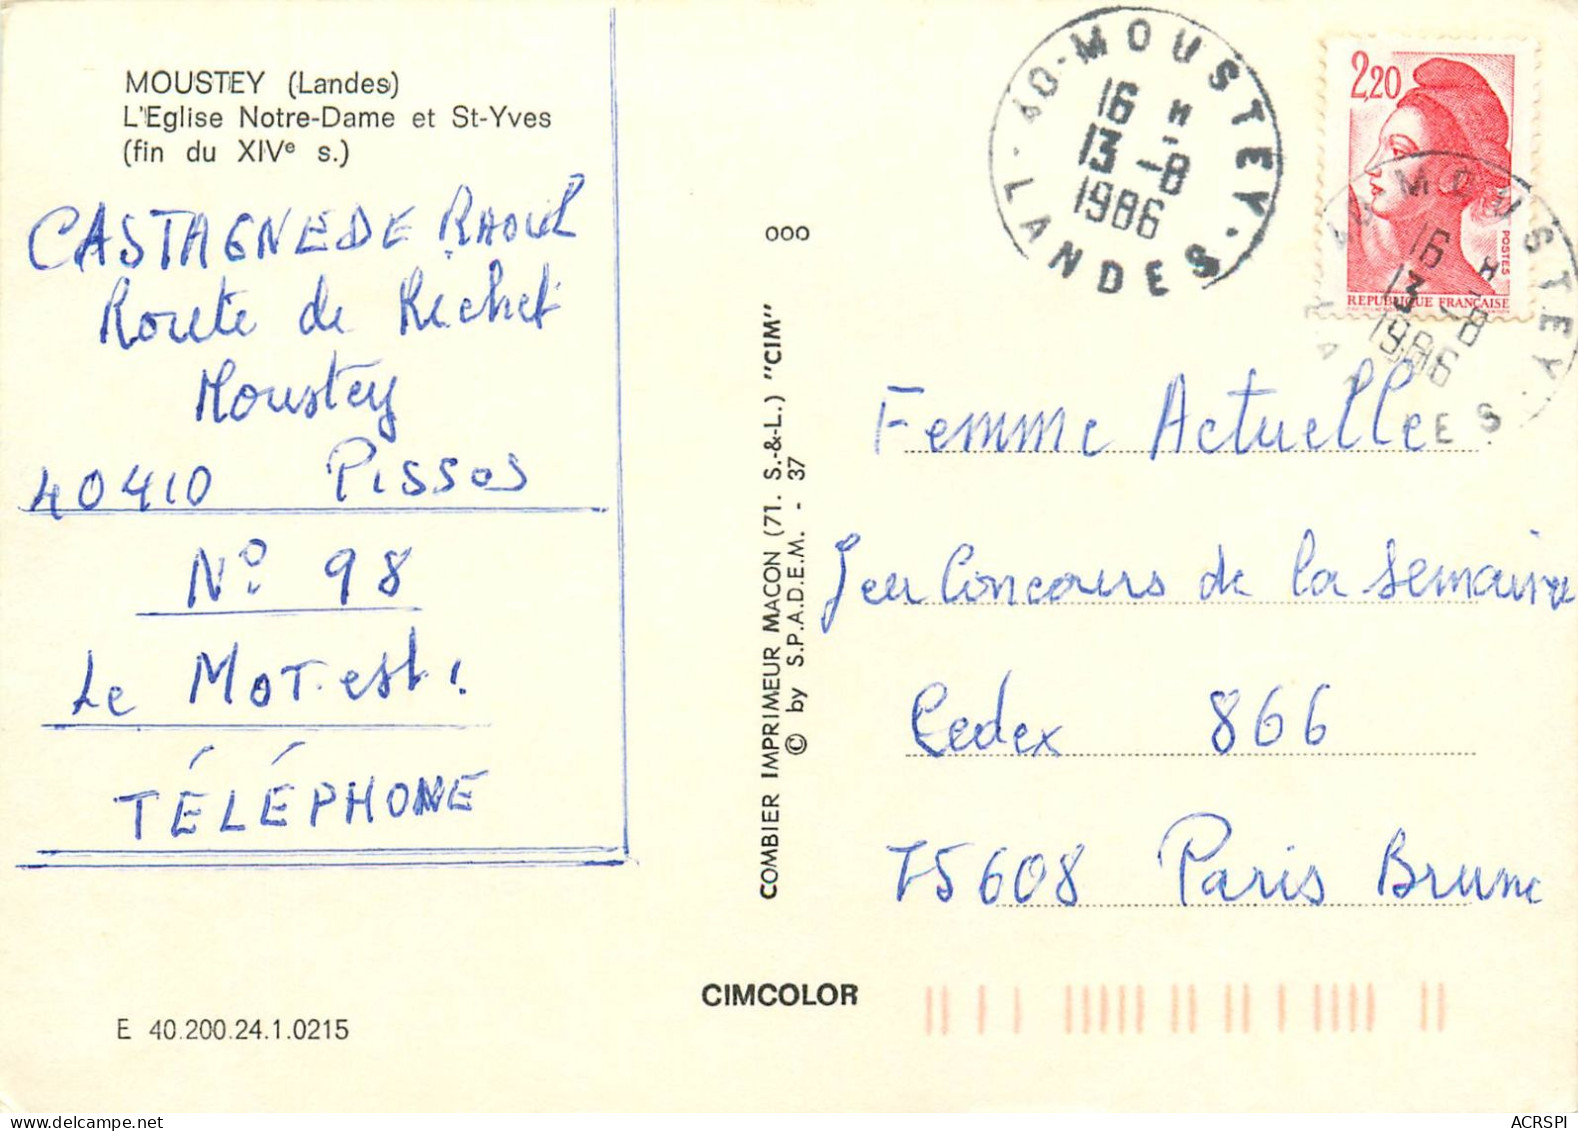 MOUSTEY (Landes)
L'Eglise Notre-Dame et St-Yves
(fin du XIVe s.)
CASTAGNEDE RAOUL
Route de Richet
Moustey
40410 Pissos
N° 98
Le MOT est :
TÉLÉPHONE
E 40.200.24.1.0215
ooo
COMBIER IMPRIMEUR MACON (71. S.-&-L.) "CIM"
© by S.P.A.D.E.M. - 37
CIMCOLOR
40-MOUSTEY
16 H
13 -8
1986
LANDES
2,20
POSTES
REPUBLIQUE FRANÇAISE
40 MOUSTEY
16 H
13 -8
1986
Femme Actuelle
Jeu Concours de la semaine
Cedex 866
75608 Paris Brune
ACRSPI